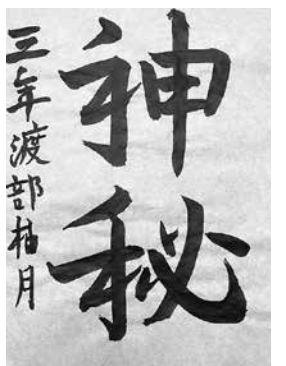 神秘
三年渡部柚月